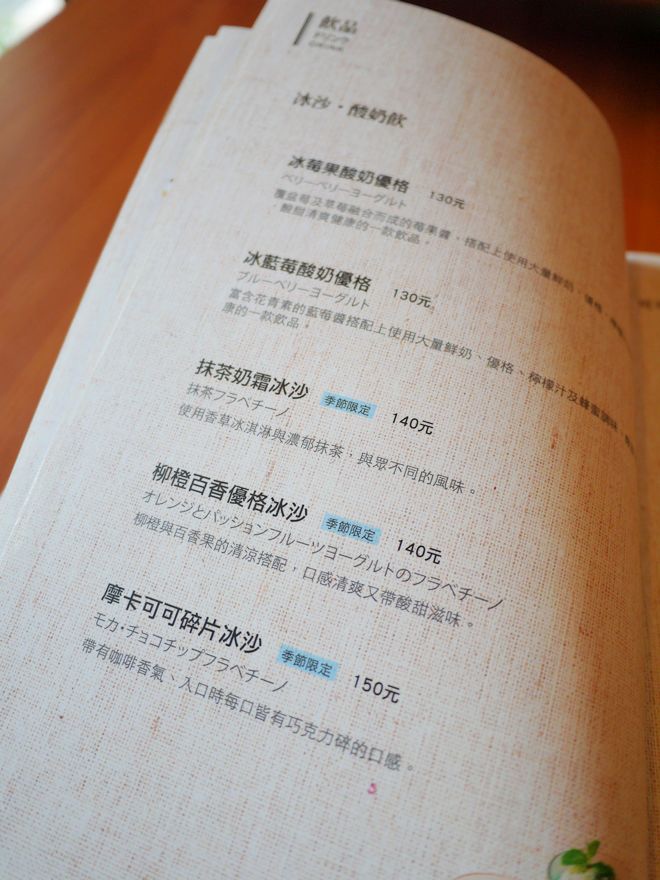 飲品
ドリンク
DRINK
冰沙・酸奶飲
冰莓果酸奶優格 130元
ベリーベリーヨーグルト
覆盆莓及草莓融合而成的莓果醬，搭配上使用大量鮮奶、優格、
酸甜清爽健康的一款飲品。
冰藍莓酸奶優格 130元
ブルーベリーヨーグルト
富含花青素的藍莓醬搭配上使用大量鮮奶、優格、檸檬汁及蜂蜜調味，
康的一款飲品。
抹茶奶霜冰沙 季節限定 140元
抹茶フラペチーノ
使用香草冰淇淋與濃郁抹茶，與眾不同的風味。
柳橙百香優格冰沙 季節限定 140元
オレンジとパッションフルーツヨーグルトのフラペチーノ
柳橙與百香果的清涼搭配，口感清爽又帶酸甜滋味。
摩卡可可碎片冰沙 季節限定 150元
モカ・チョコチップフラペチーノ
帶有咖啡香氣、入口時每口皆有巧克力碎的口感。